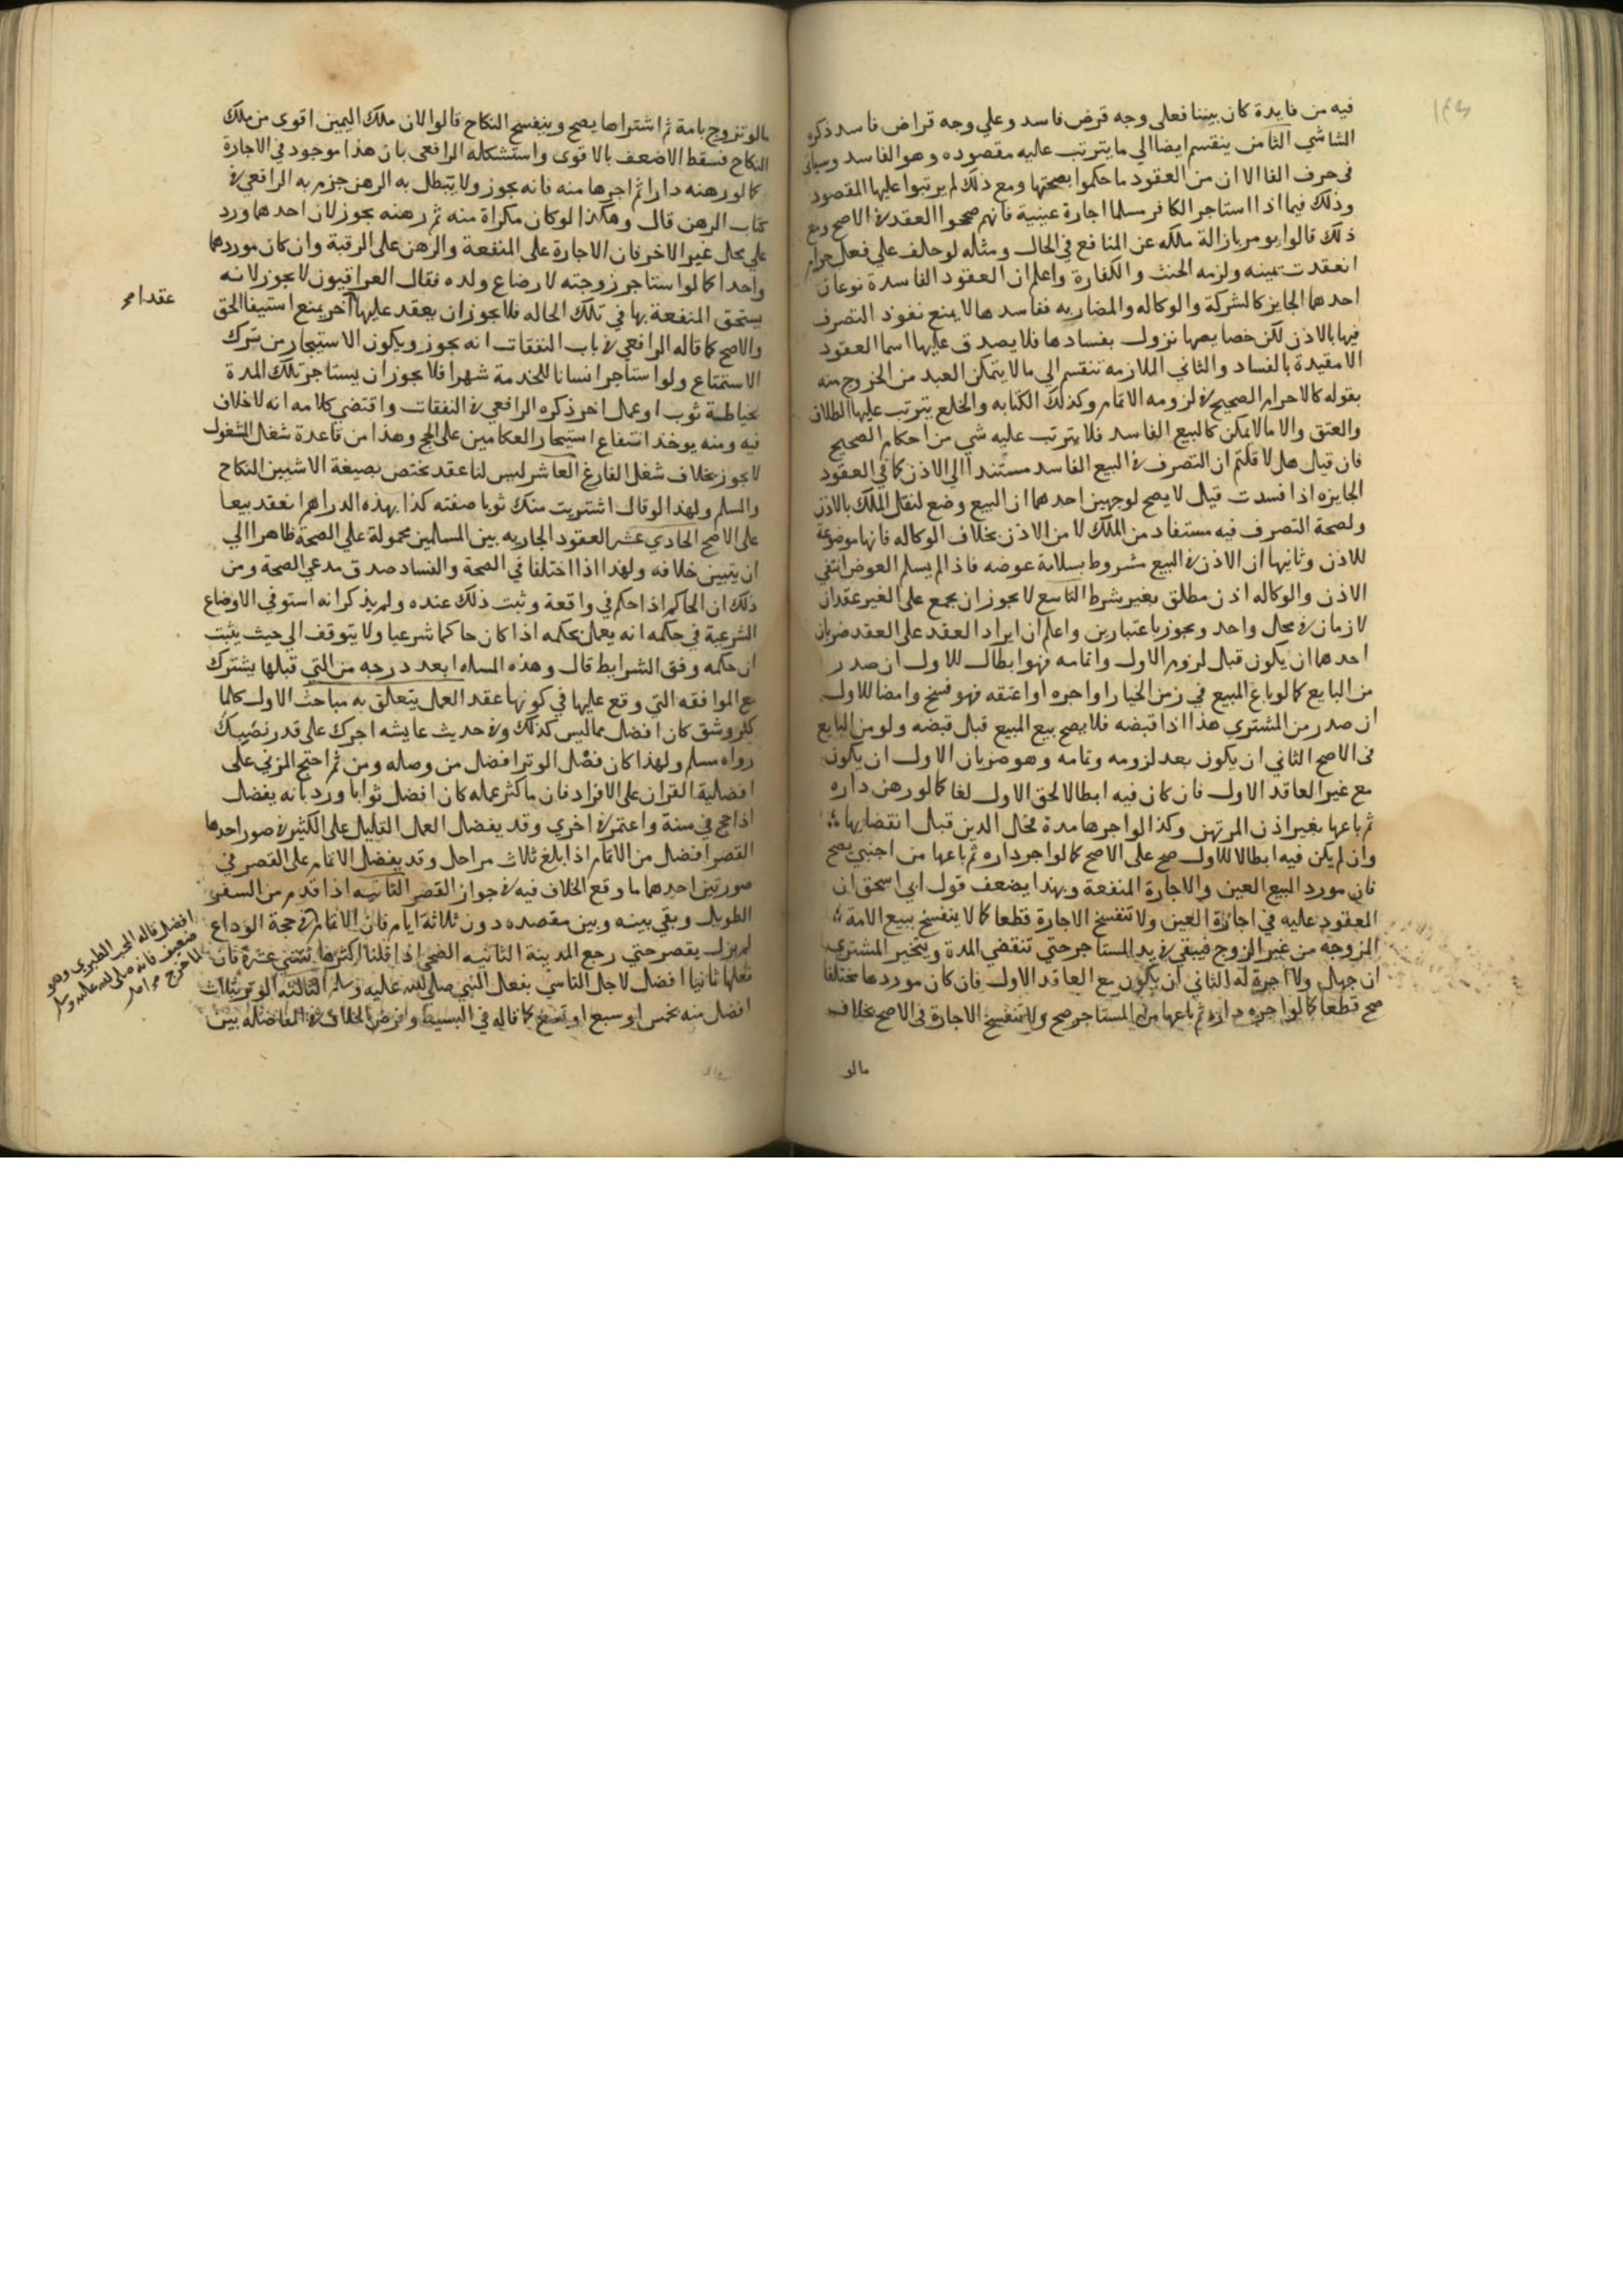 فيه من فايدة كان بيننا فعلى وجه قرض فاسد وعلي وجه قراض فاسد ذكره
الشاشي الثامن ينقسم ايضا الي ما يترتب عليه مقصوده وهو الفاسد وسياتي
في حرف الفا الا ان من العقود ما حكموا بصحتها ومع ذلك لم يرتبوا عليها المقصود
وذلك فيما اذا استاجر الكافر مسلما اجارة عينية فانهم صححوا العقد في الاصح ومع
ذلك قالوا يومر بازالة ملكه عن المنافع في الحال ومثله لو حلف على فعل حرام
انعقدت يمينه ولزمه الحنث والكفارة واعلم ان العقود الفاسدة نوعان
احدها الجايز كالشركة والوكاله والمضاربه ففاسدها لا يمنع نفوذ التصرف
فيها بالاذن لكن خصايصها تزول بفسادها فلا يصدق عليها اسما العقود
الا مقيدة بالفساد والثاني اللازمه تنقسم الي ما لا يتمكن العبد من الخروج منه
بقوله كالاحرام الصحيح في لزومه الاتمام وكذلك الكتابه والخلع يترتب عليها الطلاق
والعتق والا ما لا يمكن كالبيع الفاسد فلا يترتب عليه شي من احكام الصحيح
فان قيل هل لا قلتم ان التصرف في البيع الفاسد مستندا الي الاذن كما في العقود
الجايزه اذا فسدت قيل لا يصح لوجهين احدهما ان البيع وضع لنقل الملك بالاذن
ولصحة التصرف فيه مستفاد من الملك لا من الاذن بخلاف الوكاله فانها موضوعة
للاذن وثانيها ان الاذن في البيع مشروط بسلامة عوضه فاذا لم يسلم العوض انتفي
الاذن والوكاله اذن مطلق بغير شرط التاسع لا يجوز ان يجمع على الغير عقدان
لازمان في محل واحد ويجوز باعتبارين واعلم ان ايراد العقد على العقد ضربان
احدهما ان يكون قبل لزوم الاول واتمامه فهو ابطال للاول ان صدر
من البايع كما لو باع المبيع في زمن الخيار او اجره او اعتقه فهو فسخ وامضا للاول
ان صدر من المشتري هذا اذا قبضه فلا يصح بيع المبيع قبل قبضه ولو من البايع
في الاصح الثاني ان يكون بعد لزومه وتمامه وهو ضربان الاول ان يكون
مع غير العاقد الاول فان كان فيه ابطالا لحق الاول لغا كما لو رهن داره
ثم باعها بغير اذن المرتهن وكذا لو اجرها مدة محل الدين قبل انقضايها
وان لم يكن فيه ابطالا للاول صح على الاصح كما لو اجر داره ثم باعها من اجنبي يصح
فان مورد البيع العين والاجارة المنفعة وبهذا يضعف قول ابي اسحق ان
المعقود عليه في اجارة العين ولا تنفسخ الاجارة قطعا كما لا ينفسخ ببيع الامة
المزوجه من غير الزوج فيبقي في يد المستاجر حتي تنقضي المدة ويتخير المشتري
ان جهل ولا اجرة له الثاني ان يكون مع العاقد الاول فان كان موردها مختلفا
صح قطعا كما لو اجره داره ثم باعها من المستاجر صح ولا تنفسخ الاجارة في الاصح بخلاف
مالو
مالو تزوج بامة ثم اشتراها يصح وينفسخ النكاح قالوا لان ملك اليمين اقوى من ملك
النكاح فسقط الاضعف بالاقوى واستشكله الرافعي بان هذا موجود في الاجارة
كما لو رهنه دارا ثم اجرها منه فانه يجوز ولا يتبطل به الرهن جزم به الرافعي في
كتاب الرهن قال وهكذا لو كان مكراة منه ثم رهنه يجوز لان احدهما ورد
علي محل غير الاخر فان الاجارة على المنفعة والرهن على الرقبة وان كان موردها
واحدا كما لو استاجر زوجته لارضاع ولده فقال العراقيون لا يجوز لانه
يستحق المنفعة بها في تلك الحاله فلا يجوز ان يعقد عليها اخر يمنع استيفا الحق
عقدا
والاصح كما قاله الرافعي في باب النفقات انه يجوز ويكون الاستيجار من ترك
الاستمتاع ولو استاجر انسانا للخدمة شهرا فلا يجوز ان يستاجر تلك المدة
بخياطة ثوب او عمل اخر ذكره الرافعي في النفقات واقتضي كلامه انه لا خلاف
فيه ومنه يوخذ انتفاع استيجار العكامين على الحج وهذا من قاعدة شغل المشغول
لا يجوز بخلاف شغل الفارغ العاشر ليس لنا عقد يختص بصيغة الا شيين النكاح
والسلم ولهذا لو قال اشتريت منك ثوبا صفته كذا بهذه الدراهم انعقد بيعا
على الاصح الحادي عشر العقود الجاريه بين المسلمين محمولة علي الصحة ظاهرا الي
ان يتبين خلافه ولهذا اذا اختلفا في الصحة والفساد صدق مدعي الصحة ومن
ذلك ان الحاكم اذا حكم في واقعة وثبت ذلك عنده ولم يذكر انه استوفي الاوضاع
الشرعية في حكمه انه يعمل بحكمه اذا كان حاكما شرعيا ولا يتوقف الي حيث يثبت
ان حكمه وفق الشرايط قال وهذه المسله ابعد درجه من التي قبلها يشترك
مع الموافقه التي وقع عليها في كونها عقد العمل يتعلق به مباحث الاول كلما
كثر وشق كان افضل مما ليس كذلك وفي حديث عايشه اجرك على قدر نصبك
رواه مسلم ولهذا كان فصل الوتر افضل من وصله ومن ثم احتج المزني على
افضلية القران على الافراد فان ما كثر عمله كان افضل ثوابا ورد بانه يفضل
اذا حج في سنة واعتمر في اخري وقد يفضل العمل القليل على الكثير في صور احدها
القصر افضل من الاتمام اذا بلغ ثلاث مراحل وقد يفضل الاتمام على القصر في
صورتين احدهما ما وقع الخلاف فيه في جواز القصر الثانيه اذا قدم من السفر
الطويل وبقي بينه وبين مقصده دون ثلاثة ايام فان الاتمام في حجة الوداع
افضل قاله المحب الطبري وهو
ضعيف فانه صلى الله عليه وسلم
لما خرج
لم يزل يقصر حتي رجع المدينة الثانيه الضحى اذا قلنا اكثرها ثنتي عشرة فان
فعلها ثمانيا افضل لاجل التاسي بفعل النبي صلى الله عليه وسلم الثالثه الوتر بثلاث
افضل منه بخمس او سبع او تسع كما قاله في البسيط وفرض الخلاف في المفاضله بين